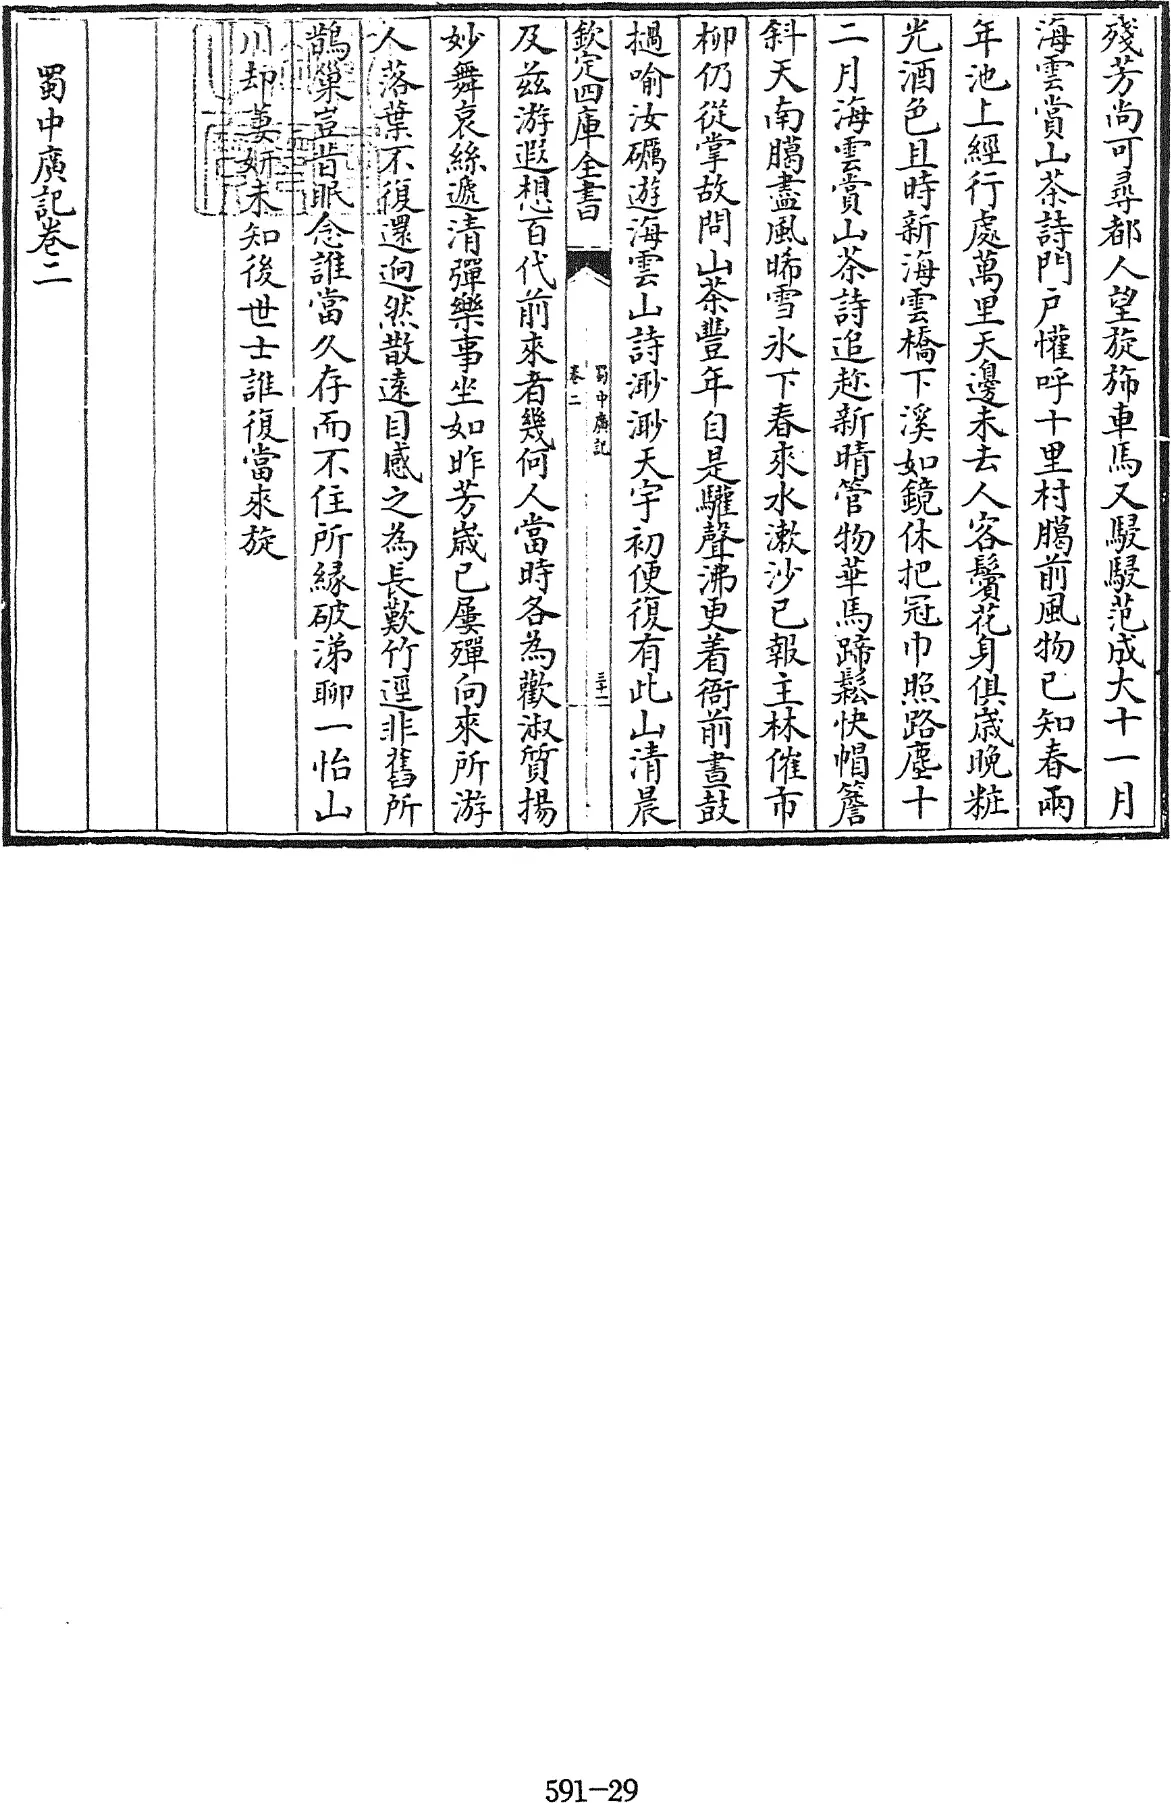 殘芳尚可尋都人望旋斾車馬又駸駸范成大十一月
海雲賞山茶詩門戸懽呼十里村臈前風物已知春兩
年池上經行處萬里天邊未去人客鬢花身俱歳晩粧
光酒色且時新海雲橋下溪如鏡休把冠巾照路塵十
二月海雲賞山茶詩追趂新晴管物華馬蹄鬆快帽簷
斜天南臈盡風晞雪氷下春來水漱沙已報主林催市
柳仍從掌故問山茶豐年自是驩聲沸更着衙前畫鼓
撾喻汝礪遊海雲山詩渺渺天宇初便復有此山清晨
欽定四庫全書
蜀中廣記
卷二
三十一
及兹游遐想百代前來者幾何人當時各為歡淑質揚
妙舞哀絲遞清彈樂事坐如昨芳歳已屢殫向來所游
人落葉不復還逈然散遠目感之為長歎竹逕非舊所
鵲巢豈昔眠念誰當久存而不住所緣破涕聊一怡山
川却萋妍未知後世士誰復當來旋
蜀中廣記卷二
591-29